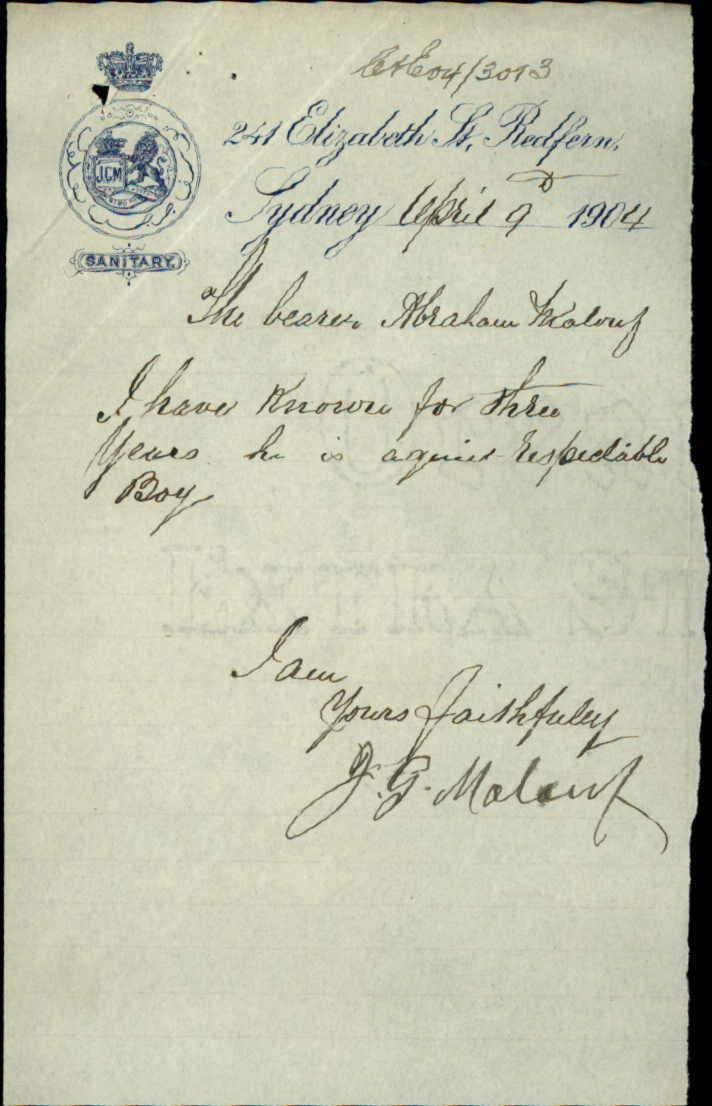 C+E04/3013
J.C.M
SANITARY.
241 Elizabeth St, Redfern,
Sydney April 9th 1904
The bearer Abraham Malouf
I have Known for three
Years he is a quiet respectable
Boy
I am
Yours Faithfuley
J. G. Malouf